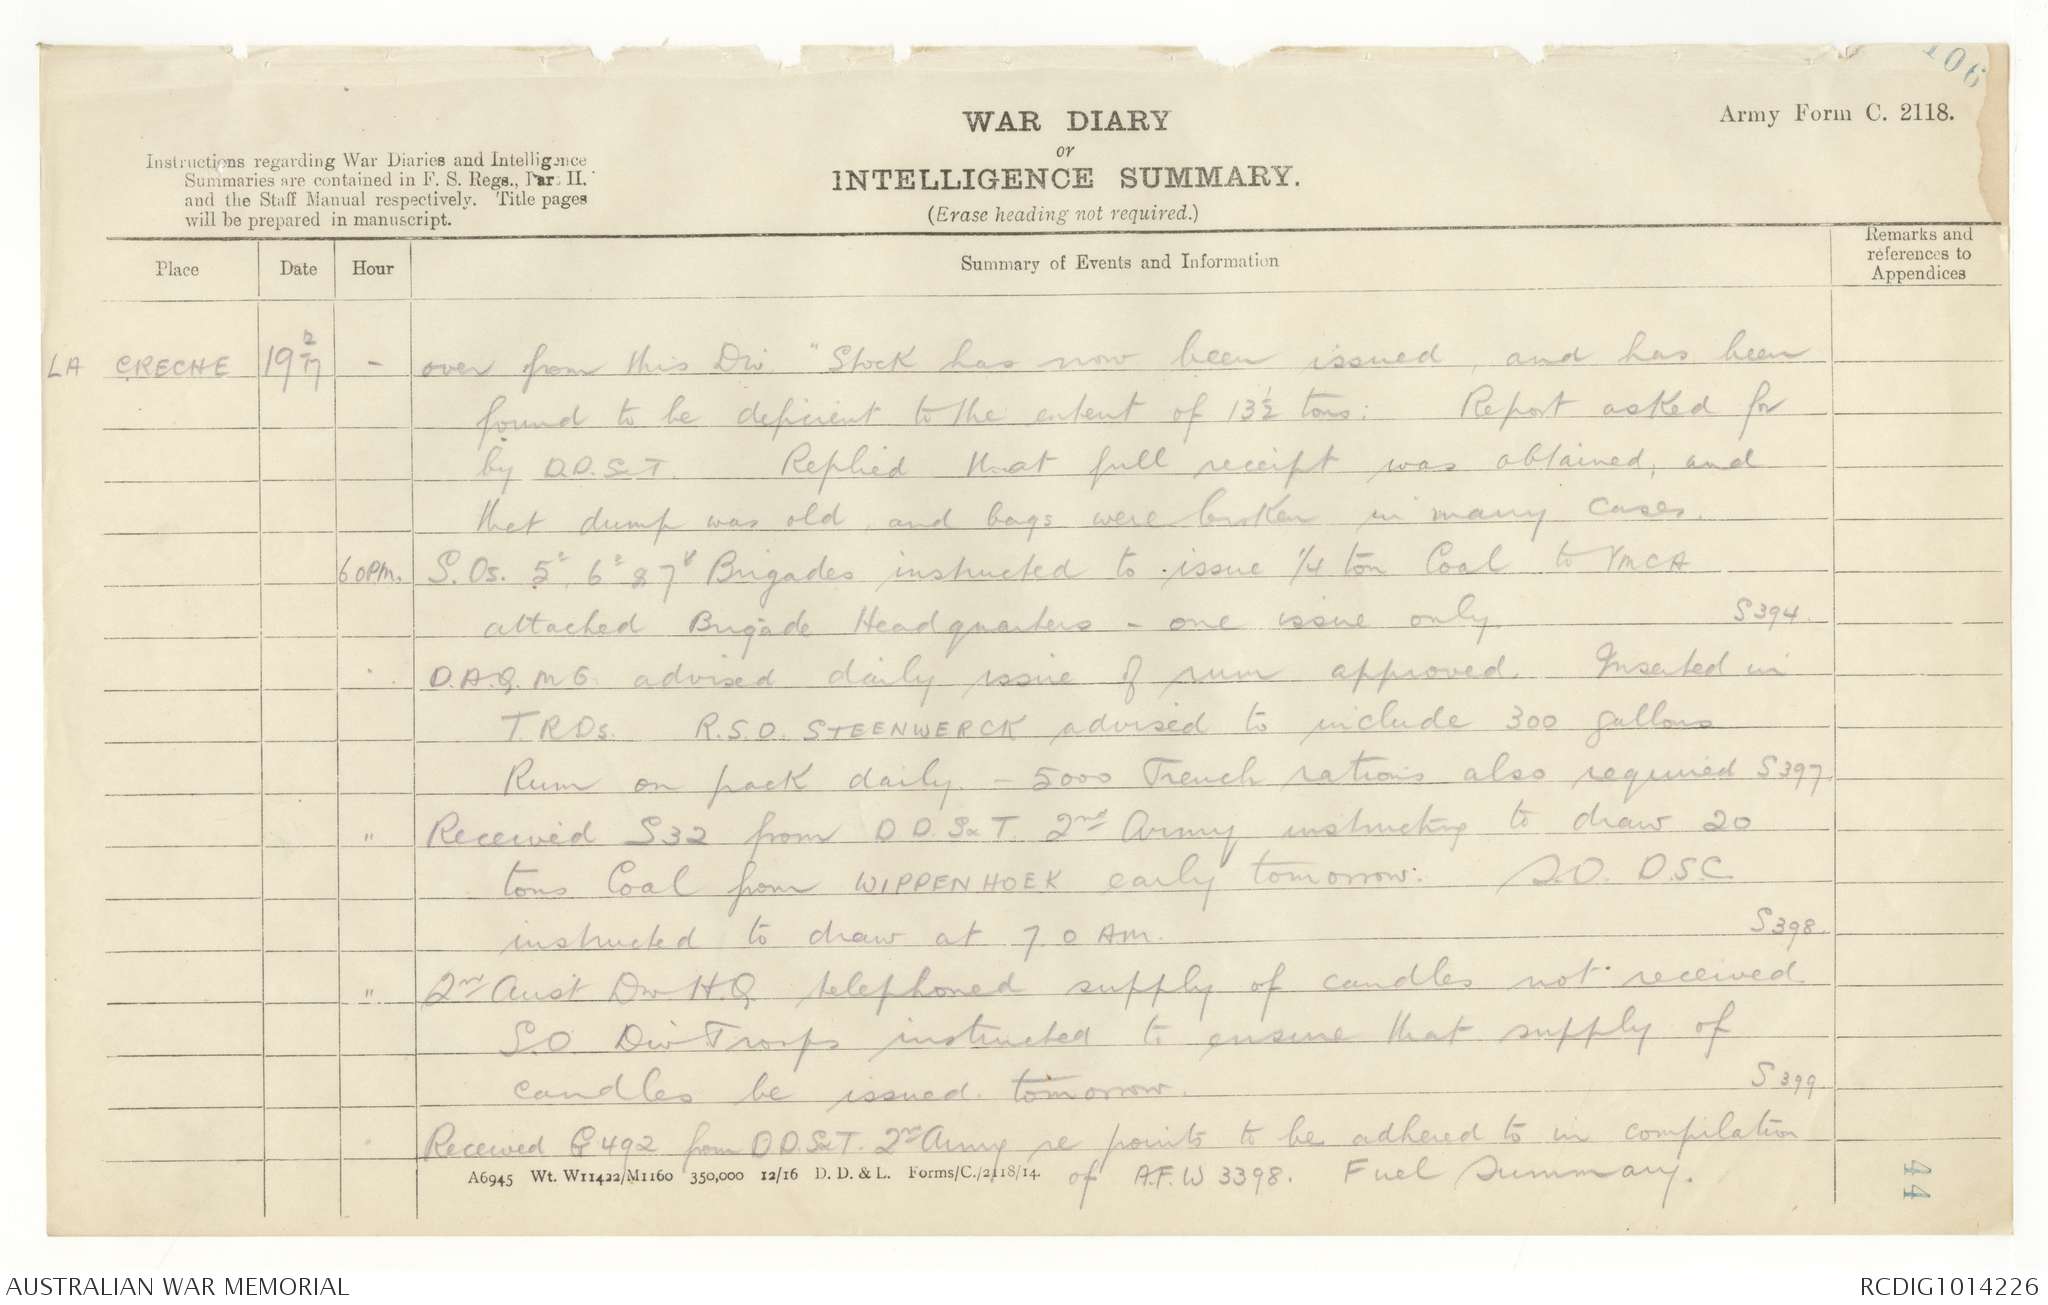 106
Army Form C. 2118.
WAR DIARY
or
INTELLIGENCE SUMMARY.
(Erase heading not required.)
Instructions regarding War Diaries and Intelligence
Summaries are contained in F. S. Regs., Part II.
and the Staff Manual respectively. Title pages
will be prepared in manuscript.
Place Date Hour Summary of Events and Information Remarks and references to Appendices
LA CRECHE 19 2/17 - over from this Div. "Stock has now been issued, and has been
found to be deficient to the extent of 13½ tons: Report asked for
by D.D.S&T. Replied that full receipt was obtained, and
that dump was old, and bags were broken in many cases.
6 0 PM. S.Os. 5, 6 & 7 Brigades instructed to issue 1/4 ton Coal to YMCA
attached Brigade Headquarters - one issue only. S394.
" D.A.Q.M.G. advised daily issue of rum approved. Inserted in
T.R.Ds. R.S.O. STEENWERCK advised to include 300 gallons
Rum on pack daily. - 5000 Trench rations also required S397.
" Received S32 from D.D.S&T. 2nd Army instructing to draw 20
tons Coal from WIPPENHOEK early tomorrow. S.O. D.S.C.
instructed to draw at 7 0 AM. S398.
" 2nd Aust Div H.Q. telephoned supply of candles not received.
S.O. Div Troops instructed to ensure that supply of
candles be issued tomorrow. S399.
" Received G492 from D.D.S&T. 2nd Army re points to be adhered to in compilation
of A.F.W 3398. Fuel Summary.
A6945 Wt. W11422/M1160 350,000 12/16 D. D. & L. Forms/C./2118/14.
44
AUSTRALIAN WAR MEMORIAL
RCDIG1014226